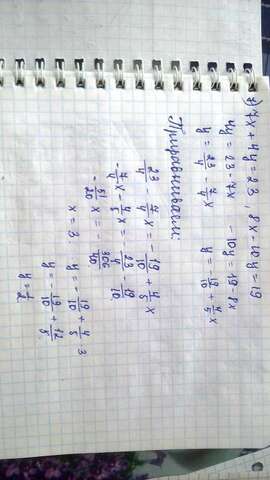 2) 7x + 4y = 23, 8x - 10y = 19
4y = 23 - 7x   -10y = 19 - 8x
y = 23/4 - 7/4 x   y = -19/10 + 4/5 x
Приравниваем:
23/4 - 7/4 x = -19/10 + 4/5 x
-7/4 x - 4/5 x = -23/4 - 19/10
-51/20 x = -306/40
x = 3   y = -19/10 + 4/5 · 3
y = -19/10 + 12/5
y = 1/2